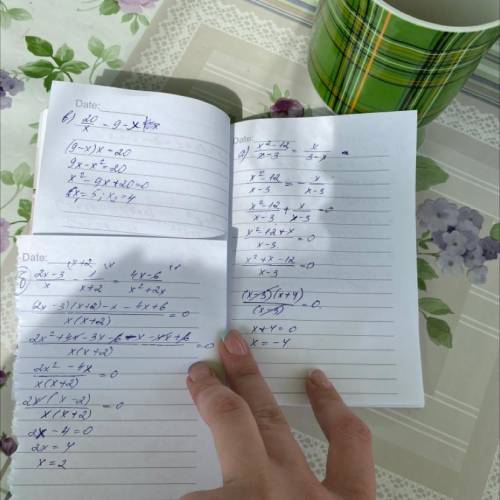 Date:
в) 20/x = 9-x
(9-x)x = 20
9x-x²=20
x²-9x+20=0
x₁=5; x₂=4
Date:
а) (x²-12)/(x-3) = x/(3-x)
(x²-12)/(x-3) = -x/(x-3)
(x²-12)/(x-3) + x/(x-3) = 0
(x²-12+x)/(x-3) = 0
(x²+x-12)/(x-3) = 0
((x-3)(x+4))/(x-3) = 0
x+4=0
x=-4
Date:
б) (2x-3)/x - 1/(x+2) = (4x-6)/(x²+2x)
((2x-3)(x+2)-x-4x+6)/(x(x+2)) = 0
(2x²+4x-3x-6-x-4x+6)/(x(x+2)) = 0
(2x²-4x)/(x(x+2)) = 0
(2x(x-2))/(x(x+2)) = 0
2x-4=0
2x=4
x=2